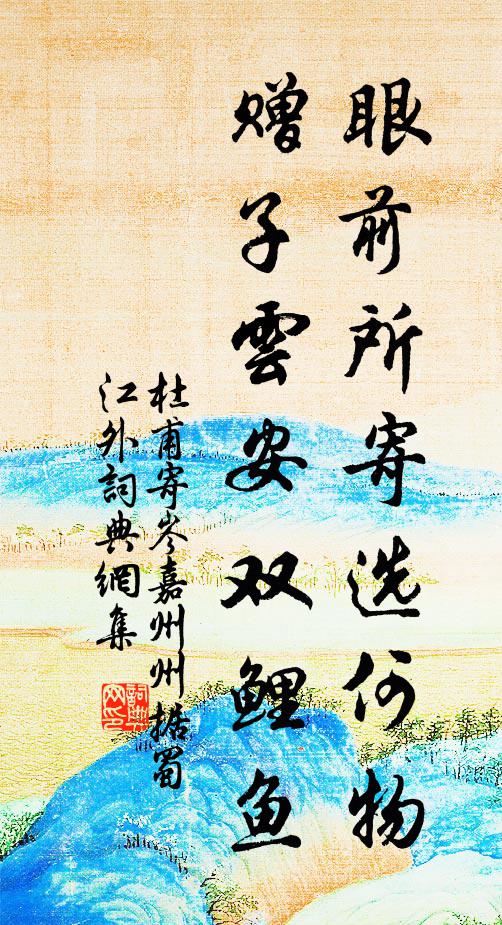 眼前所寄选何物
赠子雲安双鲤鱼
杜甫寄岑嘉州州据蜀
江外詞典網集
詞典网印